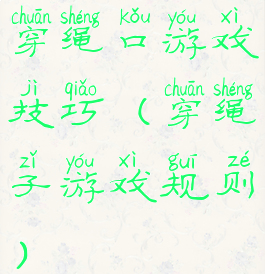 chuān shéng kǒu yóu xì
穿绳口游戏
jì qiǎo chuān shéng
技巧(穿绳
zǐ yóu xì guī zé
子游戏规则
)